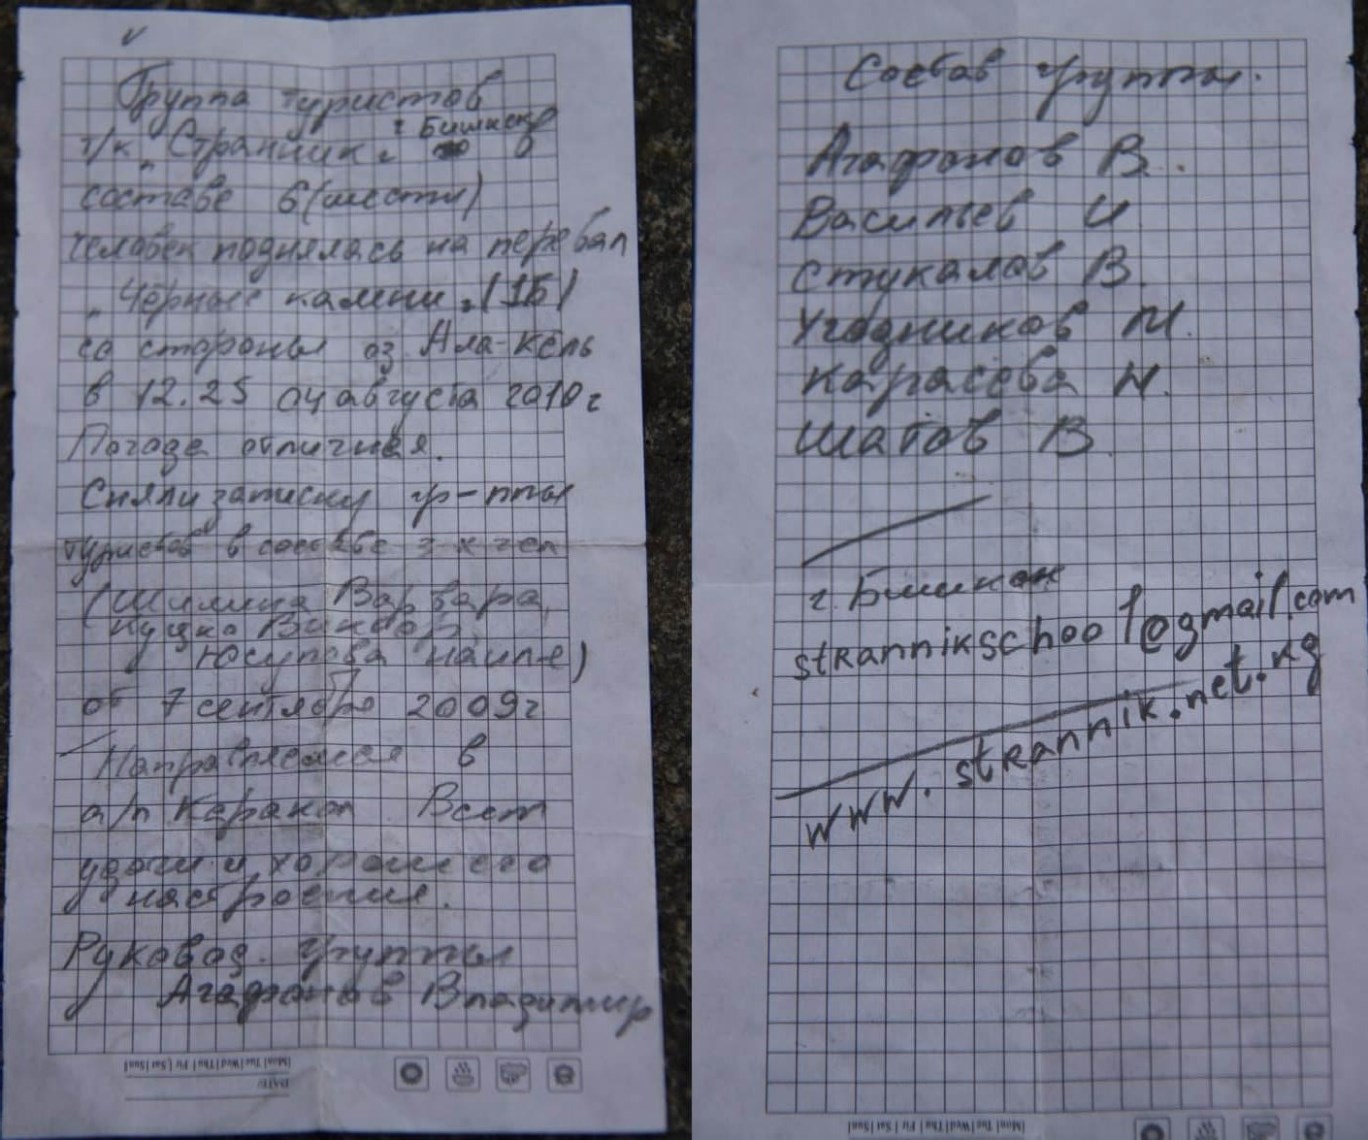 Группа туристов
т/к "Странник" г Бишкек в
составе 6 (шести)
человек поднялась на перевал
"Чёрные камни" (1Б)
со стороны оз Ала-Кель
в 12.25 04 августа 2010 г
Погода отличная.
Сняли записку гр-ппы
туристов в составе 3-х чел
(Шилина Варвара,
Куцко Виктор,
Юсупова Наиля)
от 7 сентября 2009 г
Направляемся в
а/л Каракол Всем
удачи и хорошего
настроения.
Руковод. группы
Агафонов Владимир
|Mon|Tue|Wed|Thu|Fri|Sat|Sun|
DATE:
Состав группы.
Агафонов В.
Васильев И
Стукалов В.
Угодников М.
Карасёва Н.
Шатов В.
г. Бишкек
strannikschool@gmail.com
www.strannik.net.kg
|Mon|Tue|Wed|Thu|Fri|Sat|Sun|